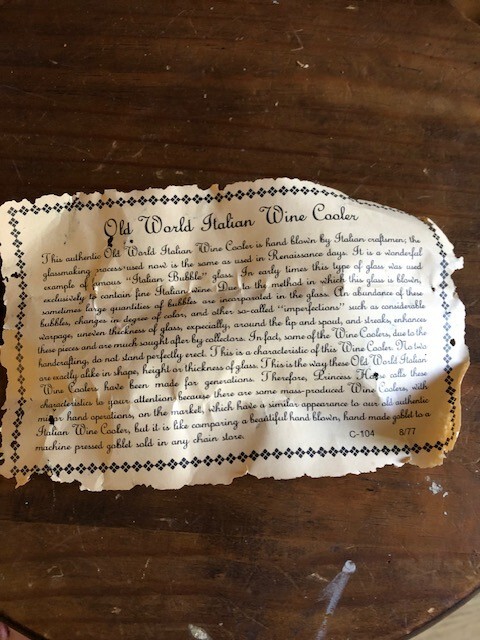 Old World Italian Wine Cooler
This authentic Old World Italian Wine Cooler is hand blown by Italian craftsmen; the
glassmaking process used now is the same as used in Renaissance days. It is a wonderful
example of famous "Italian Bubble" glass. In early times this type of glass was used
exclusively to contain fine Italian wine. Due to the method in which this glass is blown,
sometimes large quantities of bubbles are incorporated in the glass. An abundance of these
bubbles, changes in degree of color, and other so-called "imperfections" such as considerable
warpage, uneven thickness of glass, especially, around the lip and spout, and streaks, enhances
these pieces and are much sought after by collectors. In fact, some of the Wine Coolers, due to the
handcrafting, do not stand perfectly erect. This is a characteristic of this Wine Cooler. No two
are exactly alike in shape, height or thickness of glass. This is the way these Old World Italian
Wine Coolers have been made for generations. Therefore, Princess House calls these
characteristics to your attention because there are some mass-produced Wine Coolers, with
major hand operations, on the market, which have a similar appearance to our old authentic
Italian Wine Cooler, but it is like comparing a beautiful hand blown, hand made goblet to a
machine pressed goblet sold in any chain store.
C-104 8/77